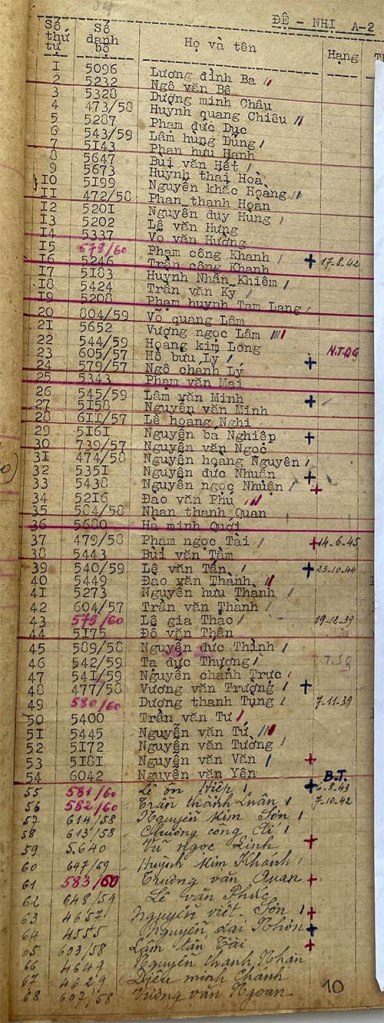 ĐỆ - NHỊ A-2
Số thứ tự Số danh bộ Họ và tên Hạng
I 5096 Lương đình Ba
2 5232 Ngô văn Bê
3 5328 Dương minh Châu
4 473/58 Huỳnh quang Chiêu
5 5287 Phạm đức Dục
6 543/59 Lâm hùng Dũng
7 5I43 Phan hưu Hạnh
8 5647 Bùi văn Hết
9 5673 Huỳnh thái Hoà
IO 5I99 Nguyễn khắc Hoàng
II 472/58 Phan thanh Hoan
I2 520I Nguyễn duy Hùng
I3 5202 Lê văn Hưng
I4 5337 Võ văn Hương
I5 578/60 Phạm công Khanh
I6 5246 Trần công Khanh + 17.8.42
I7 5I83 Huỳnh Nhân Khiêm
I8 5424 Trần văn Ky
I9 5208 Phạm huỳnh Tam Lang
20 804/59 Võ quang Lâm
2I 5652 Vương ngọc Lâm
22 544/59 Hoàng kim Long
23 605/57 Hồ bưu Lý N.T.D.G
24 579/57 Ngô chanh Lý +
25 5343 Phạm văn Mai
26 545/59 Lâm văn Minh +
27 5I58 Nguyễn văn Minh
28 6II/57 Lê hoang Nghi
29 5I6I Nguyễn ba Nghiệp +
30 739/57 Nguyễn văn Ngọc
3I 474/58 Nguyễn hoàng Nguyên
32 535I Nguyễn đưc Nhuân +
33 5438 Nguyễn ngọc Nhuận +
34 52I6 Đao văn Phú
35 584/58 Nhan thanh Quan
36 5680 Hà minh Quới
37 479/58 Phạm ngọc Tài + 14.6.45
38 5443 Bùi văn Tâm
39 540/59 Lê văn Tấn + 23.10.44
40 5449 Đao văn Thanh
4I 5273 Nguyễn hưu Thanh
42 604/57 Trần văn Thanh
43 575/60 Lê gia Thao 19.12.39
44 5I75 Đỗ văn Thân
45 589/58 Nguyễn đưc Thịnh
46 542/59 Tạ đưc Thượng
47 54I/59 Nguyễn chanh Trực
48 477/58 Vương văn Trượng +
49 580/60 Dương thanh Tụng 7.11.39
50 5400 Trần văn Tư
5I 5445 Nguyễn văn Tư
52 5I72 Nguyễn văn Tương
53 5I8I Nguyễn văn Vân +
54 6042 Nguyễn văn Yên B.T.
55 581/60 Lê ơn Hiệp + 6.8.43
56 582/60 Trần thành Luân 7.10.42
57 614/58 Nguyễn Kim Sơn
58 613/58 Chương công
59 5.640 Vũ Ngọc Linh +
60 647/59 Huỳnh Kim Khanh
61 583/60 Trương văn Quan +
62 648/59 Lê văn Phúc
63 4657 Nguyễn viết Sơn +
64 4555 Nguyễn đại Nhơn +
65 603/58 Lâm tấn Tài +
66 4649 Nguyễn thanh Nhàn
67 4629 minh Chánh
68 607/58 Vương văn Ngoan
10